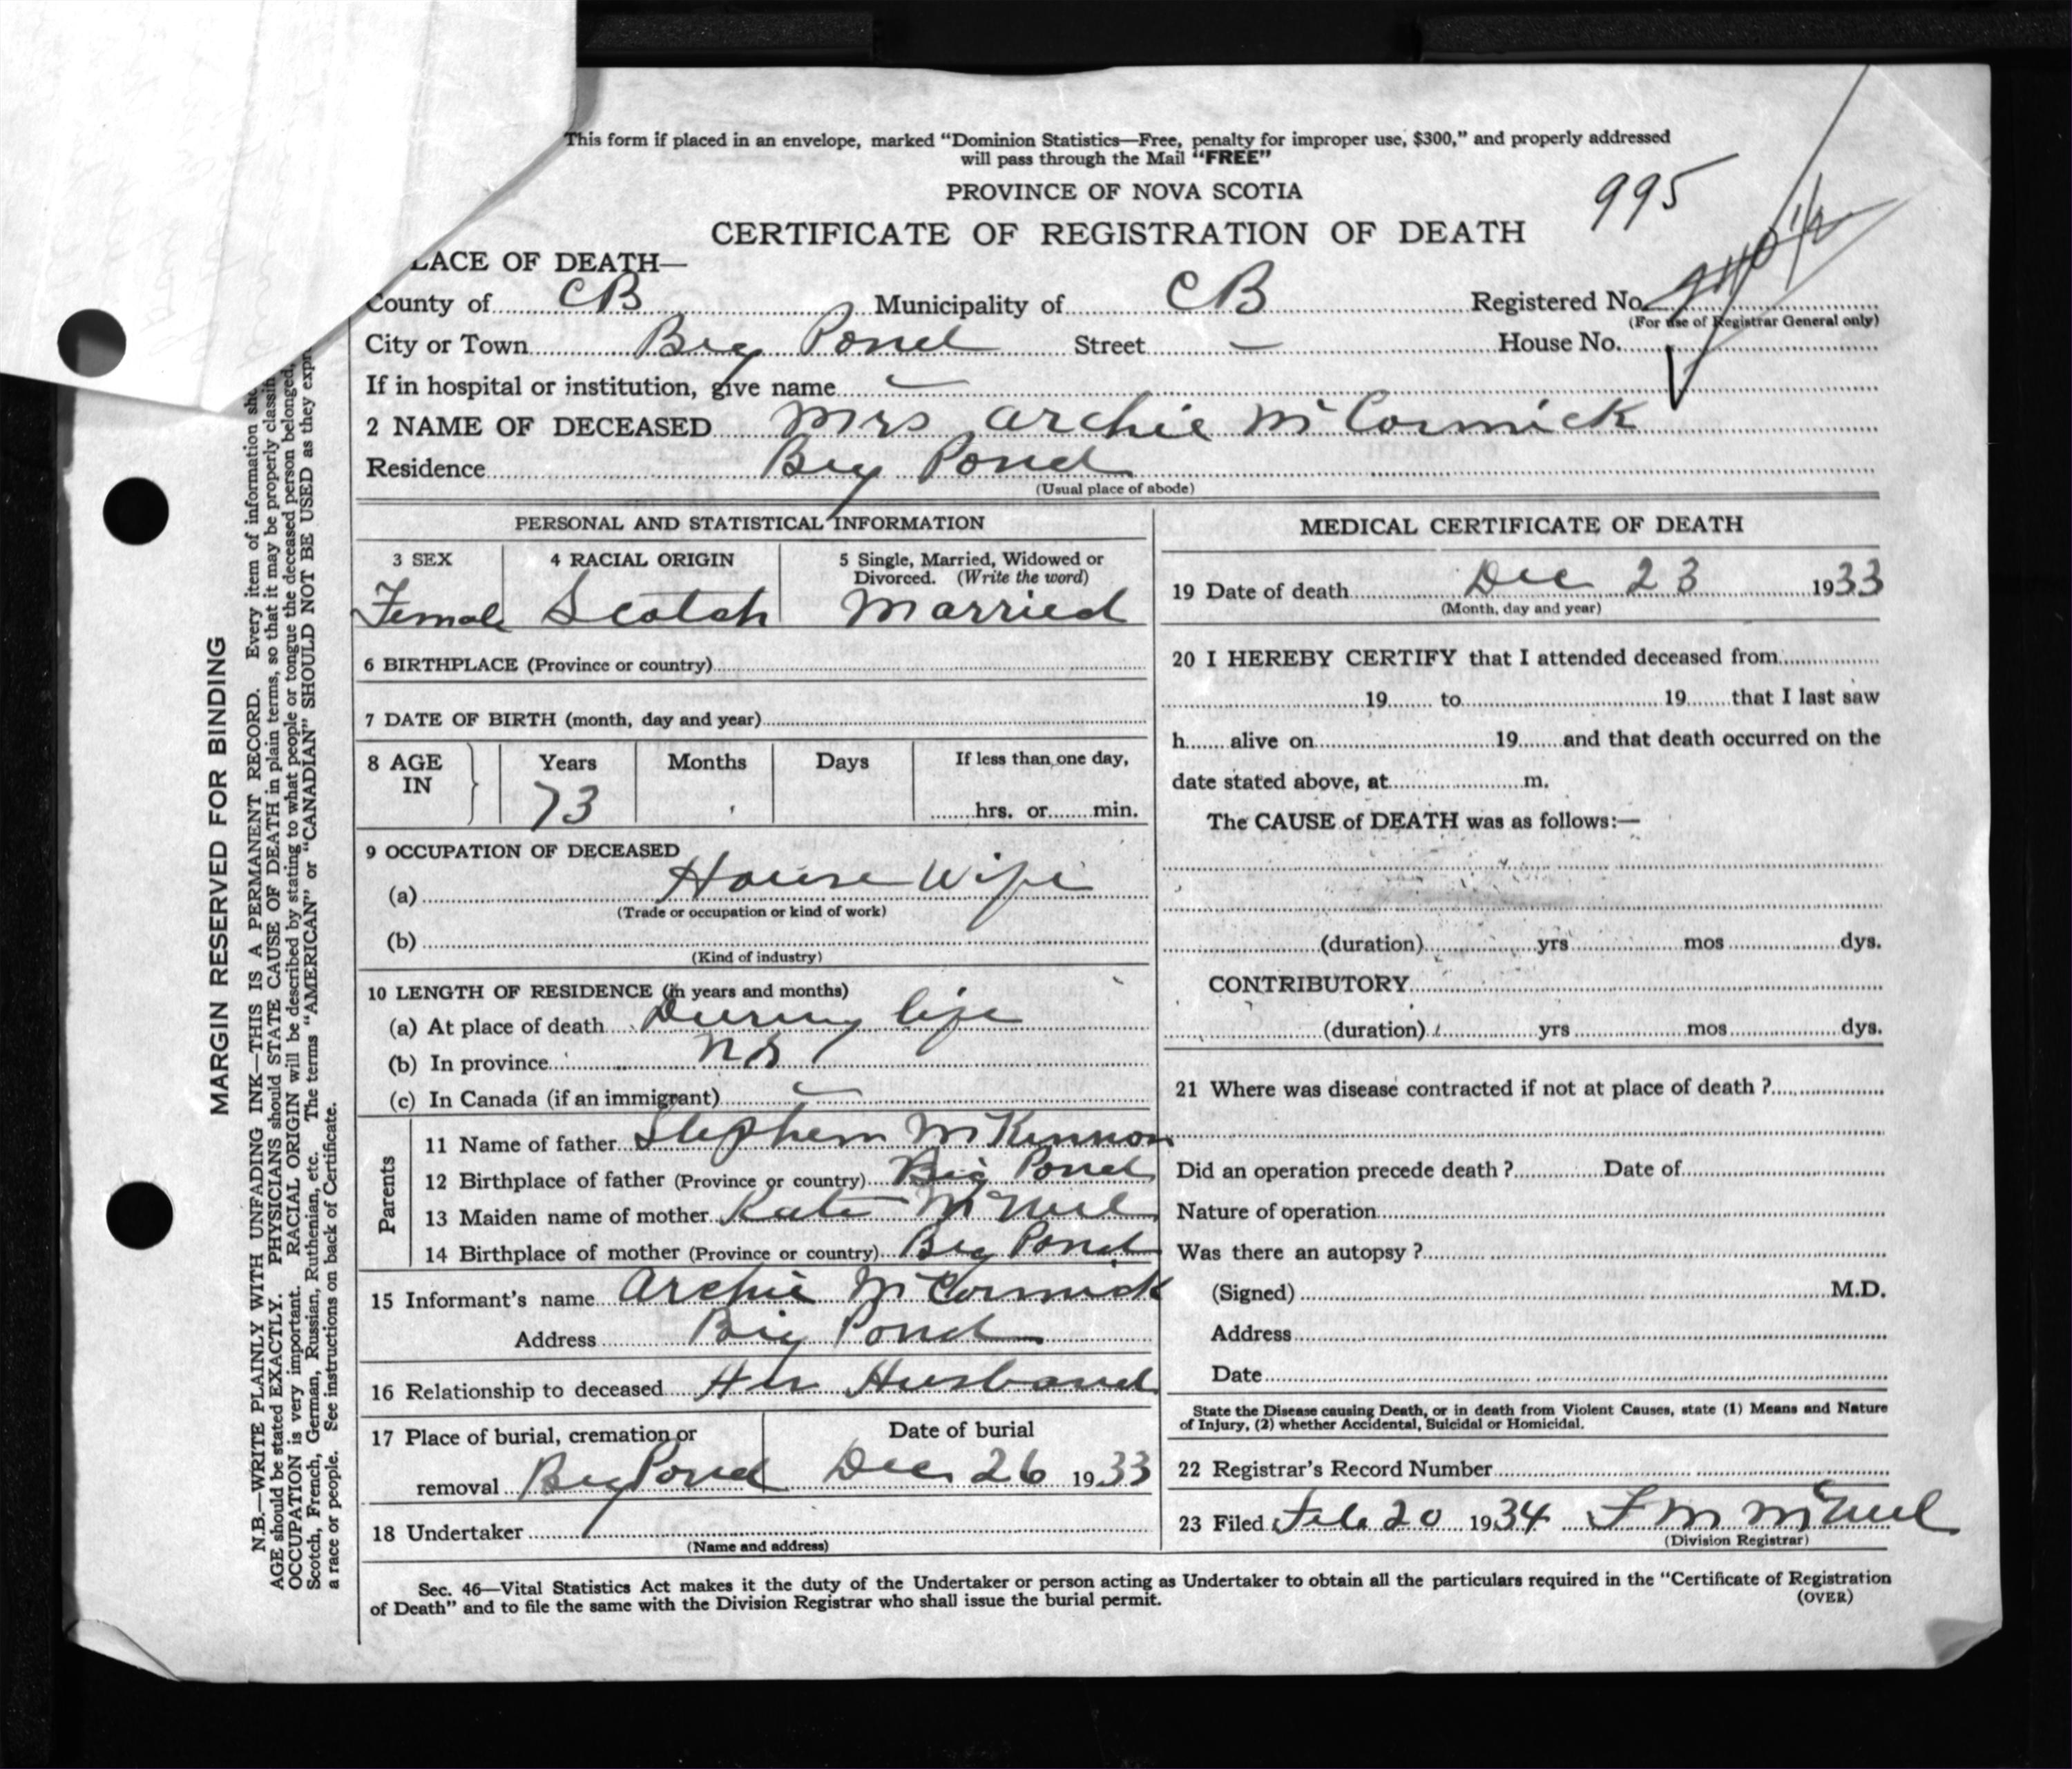 This form if placed in an envelope, marked “Dominion Statistics—Free, penalty for improper use, $300,” and properly addressed
will pass through the Mail “FREE”
PROVINCE OF NOVA SCOTIA
995
CERTIFICATE OF REGISTRATION OF DEATH
LACE OF DEATH—
County of CB Municipality of CB Registered No.
(For use of Registrar General only)
City or Town Big Pond Street — House No.
If in hospital or institution, give name —
2 NAME OF DECEASED Mrs Archie McCormick
Residence Big Pond
(Usual place of abode)
PERSONAL AND STATISTICAL INFORMATION
3 SEX 4 RACIAL ORIGIN 5 Single, Married, Widowed or
Divorced. (Write the word)
Female Scotch Married
6 BIRTHPLACE (Province or country)
7 DATE OF BIRTH (month, day and year)
8 AGE IN Years Months Days If less than one day,
73 hrs. or min.
9 OCCUPATION OF DECEASED
(a) House Wife
(Trade or occupation or kind of work)
(b)
(Kind of industry)
10 LENGTH OF RESIDENCE (in years and months)
(a) At place of death During life
(b) In province NS
(c) In Canada (if an immigrant) —
Parents
11 Name of father Stephen McKinnon
12 Birthplace of father (Province or country) Big Pond
13 Maiden name of mother Kate McNeil
14 Birthplace of mother (Province or country) Big Pond
15 Informant's name Archie McCormick
Address Big Pond
16 Relationship to deceased Her Husband
17 Place of burial, cremation or Date of burial
removal Big Pond Dec 26 1933
18 Undertaker
(Name and address)
MEDICAL CERTIFICATE OF DEATH
19 Date of death Dec 23 1933
(Month, day and year)
20 I HEREBY CERTIFY that I attended deceased from
19 to 19 that I last saw
h alive on 19 and that death occurred on the
date stated above, at m.
The CAUSE of DEATH was as follows:—
(duration) yrs mos dys.
CONTRIBUTORY
(duration) yrs mos dys.
21 Where was disease contracted if not at place of death ?
Did an operation precede death ? Date of
Nature of operation
Was there an autopsy ?
(Signed) M.D.
Address
Date
State the Disease causing Death, or in death from Violent Causes, state (1) Means and Nature
of Injury, (2) whether Accidental, Suicidal or Homicidal.
22 Registrar's Record Number
23 Filed Feb 20 1934 F M McNeil
(Division Registrar)
Sec. 46—Vital Statistics Act makes it the duty of the Undertaker or person acting as Undertaker to obtain all the particulars required in the “Certificate of Registration
of Death” and to file the same with the Division Registrar who shall issue the burial permit.
(OVER)
MARGIN RESERVED FOR BINDING
N.B.—WRITE PLAINLY WITH UNFADING INK—THIS IS A PERMANENT RECORD. Every item of information
AGE should be stated EXACTLY. PHYSICIANS should STATE CAUSE OF DEATH in plain terms, so that it may be properly
OCCUPATION is very important. RACIAL ORIGIN will be described by stating to what people or tongue the deceased person belonged,
Scotch, French, German, Russian, Ruthenian, etc. The terms “AMERICAN” or “CANADIAN” SHOULD NOT BE USED as they
a race or people. See instructions on back of Certificate.